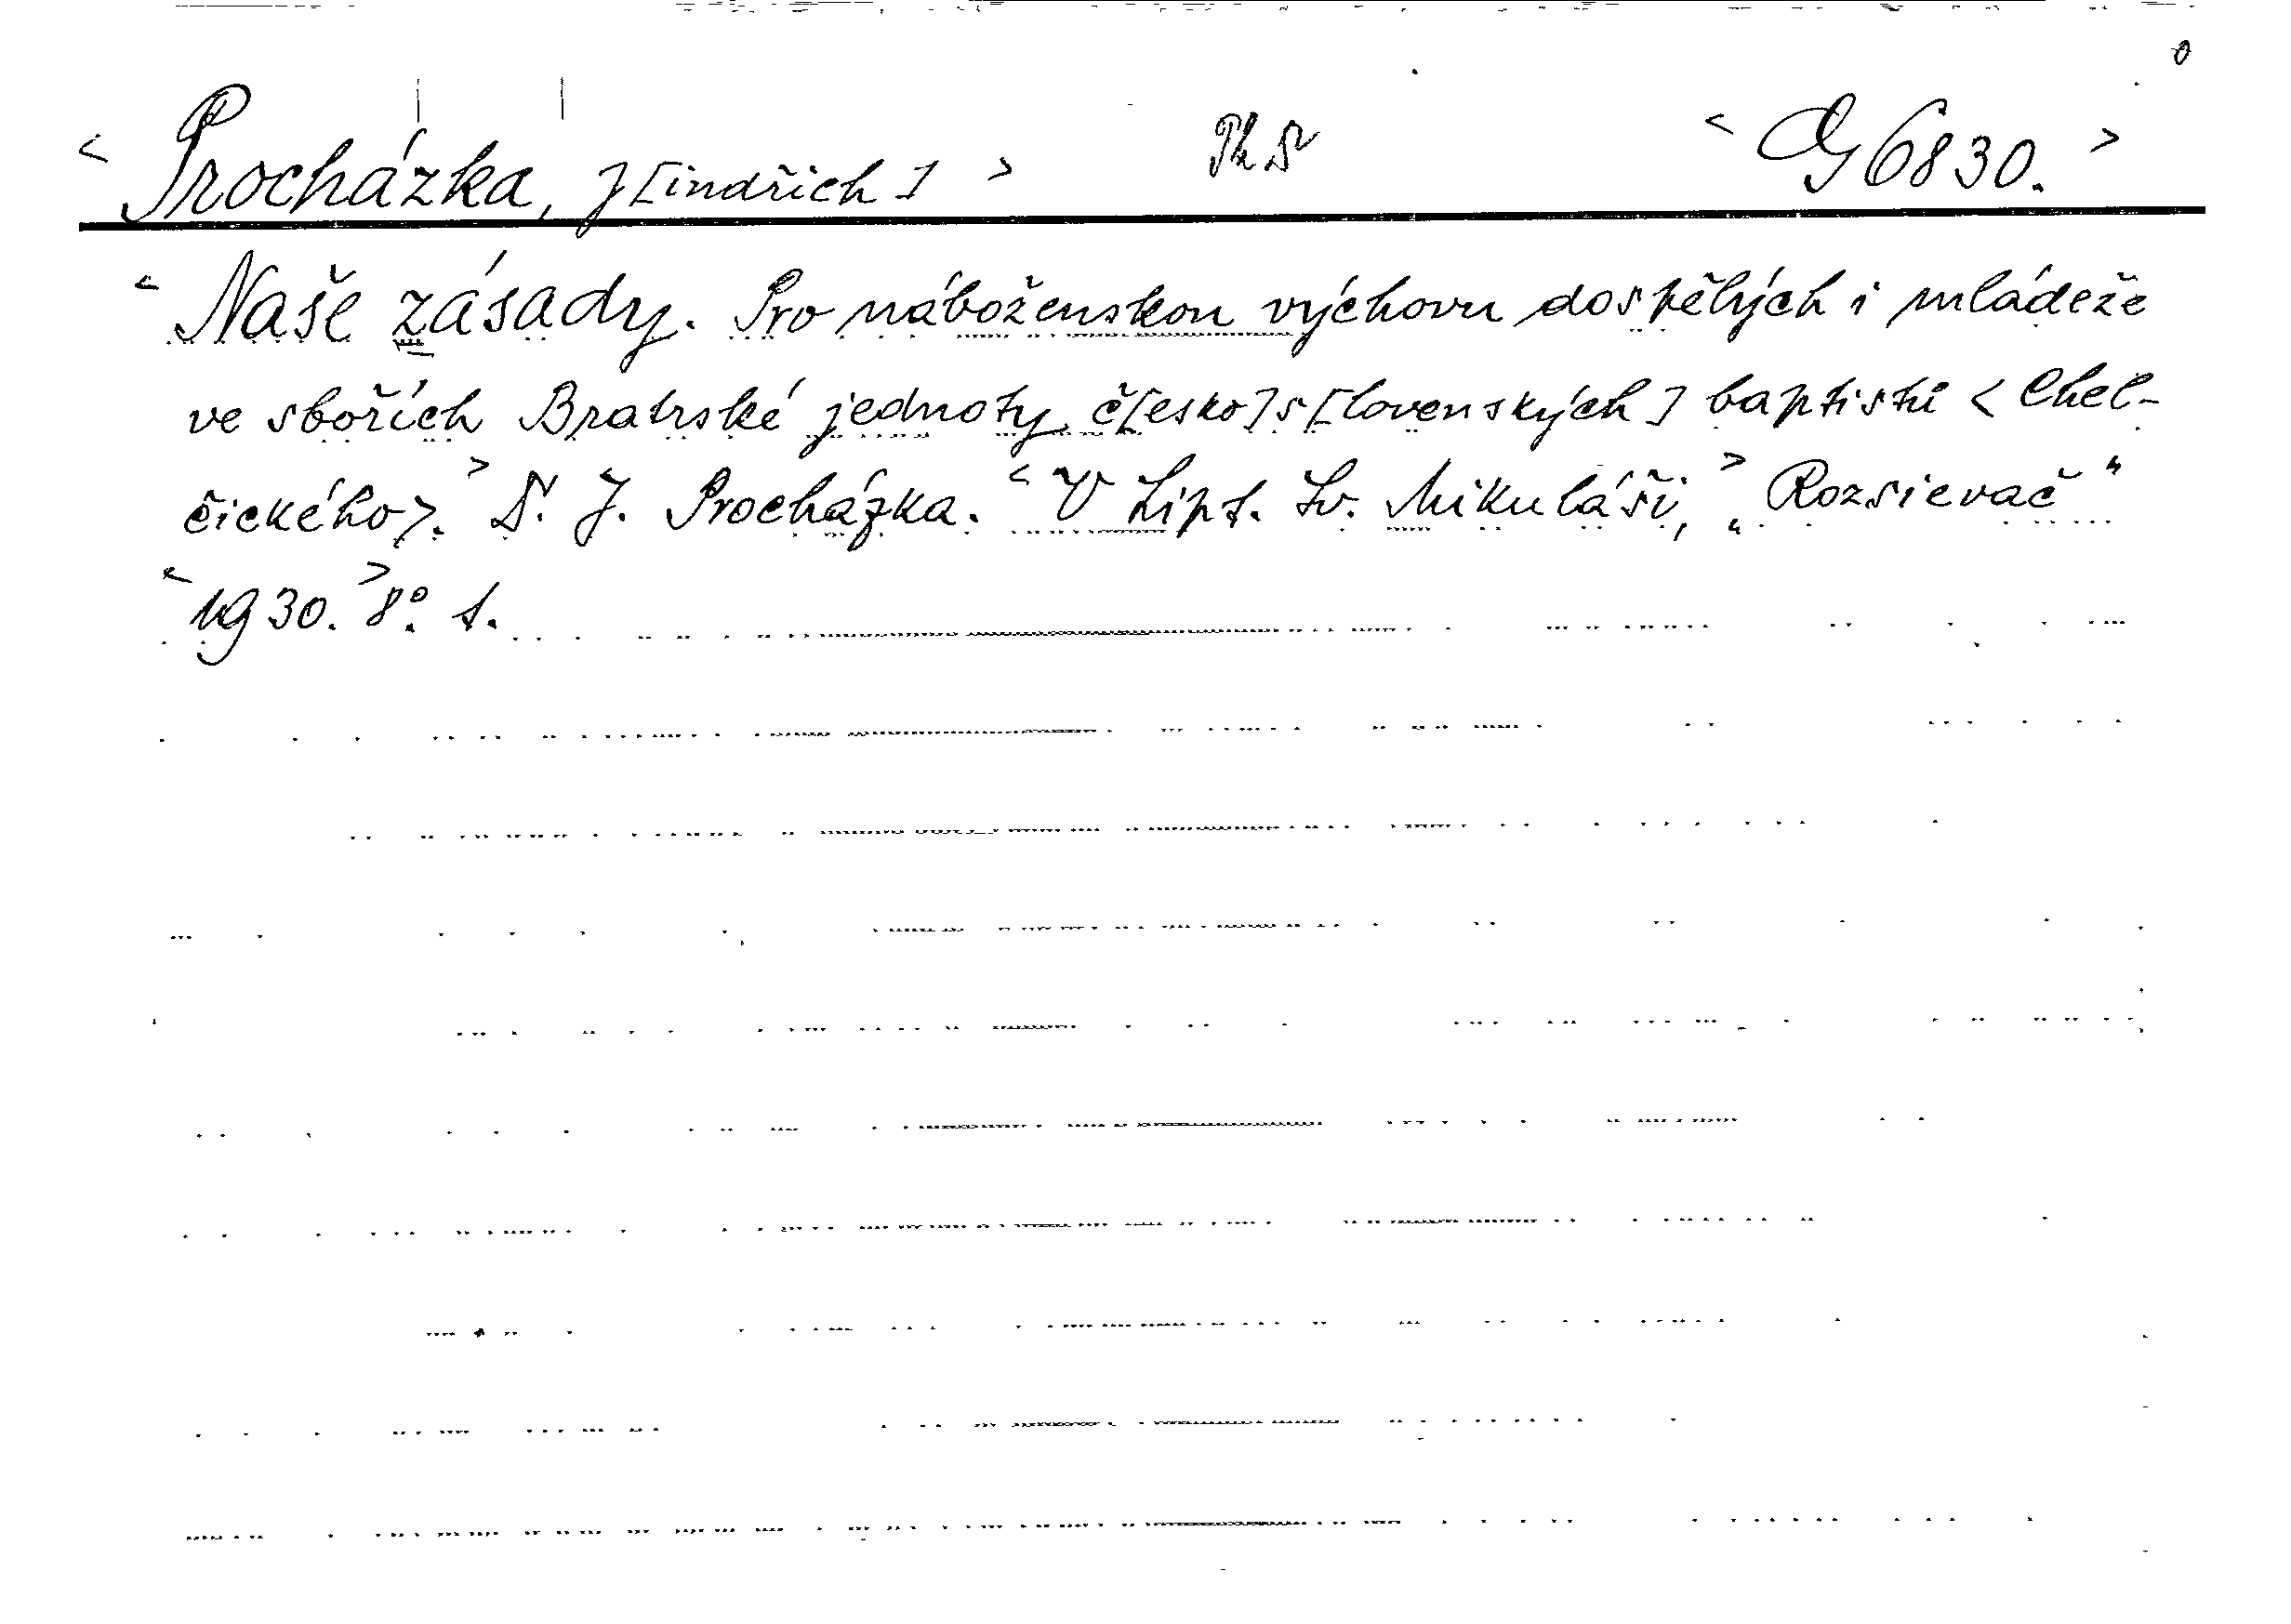 < Procházka, J[indřich] > PhDr < G 6830. >
< Naše zásady. Pro náboženskou výchovu dospělých i mládeže
ve sborích Bratrské jednoty č[esko]s[lovenských] baptistů < Chel-
čického>. > Dr. J. Procházka. < V Lipt. Sv. Mikuláši, > „Rozsievač"
< 1930. > 8°. s.